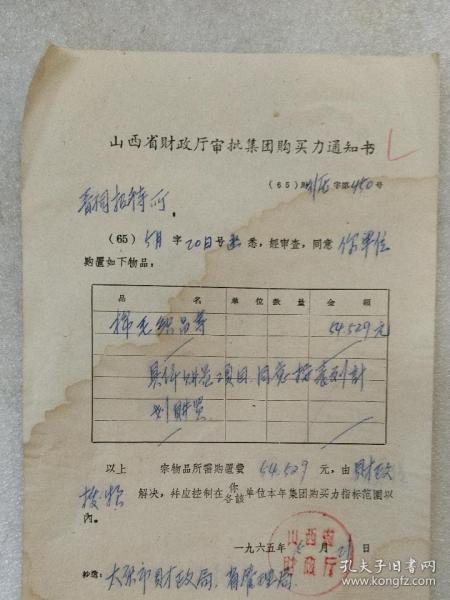 山西省财政厅审批集团购买力通知书
(65)财 字第450号
招待所
(65)5月 字20日号 悉,经审查,同意 你单位
购置如下物品:
品名 单位 数量 金额
棉毛织品等 54.529元
具体购置项目同意按表列計
划购买
以上 宗物品所需购置费 54.529 元,由 财政
拨款 解决,并应控制在 你 各該 单位本年集团购买力指标范围以
內。
山西省
财政厅
一九六五年 月 21 日
抄送: 太原市财政局、省管理局
孔夫子旧书网